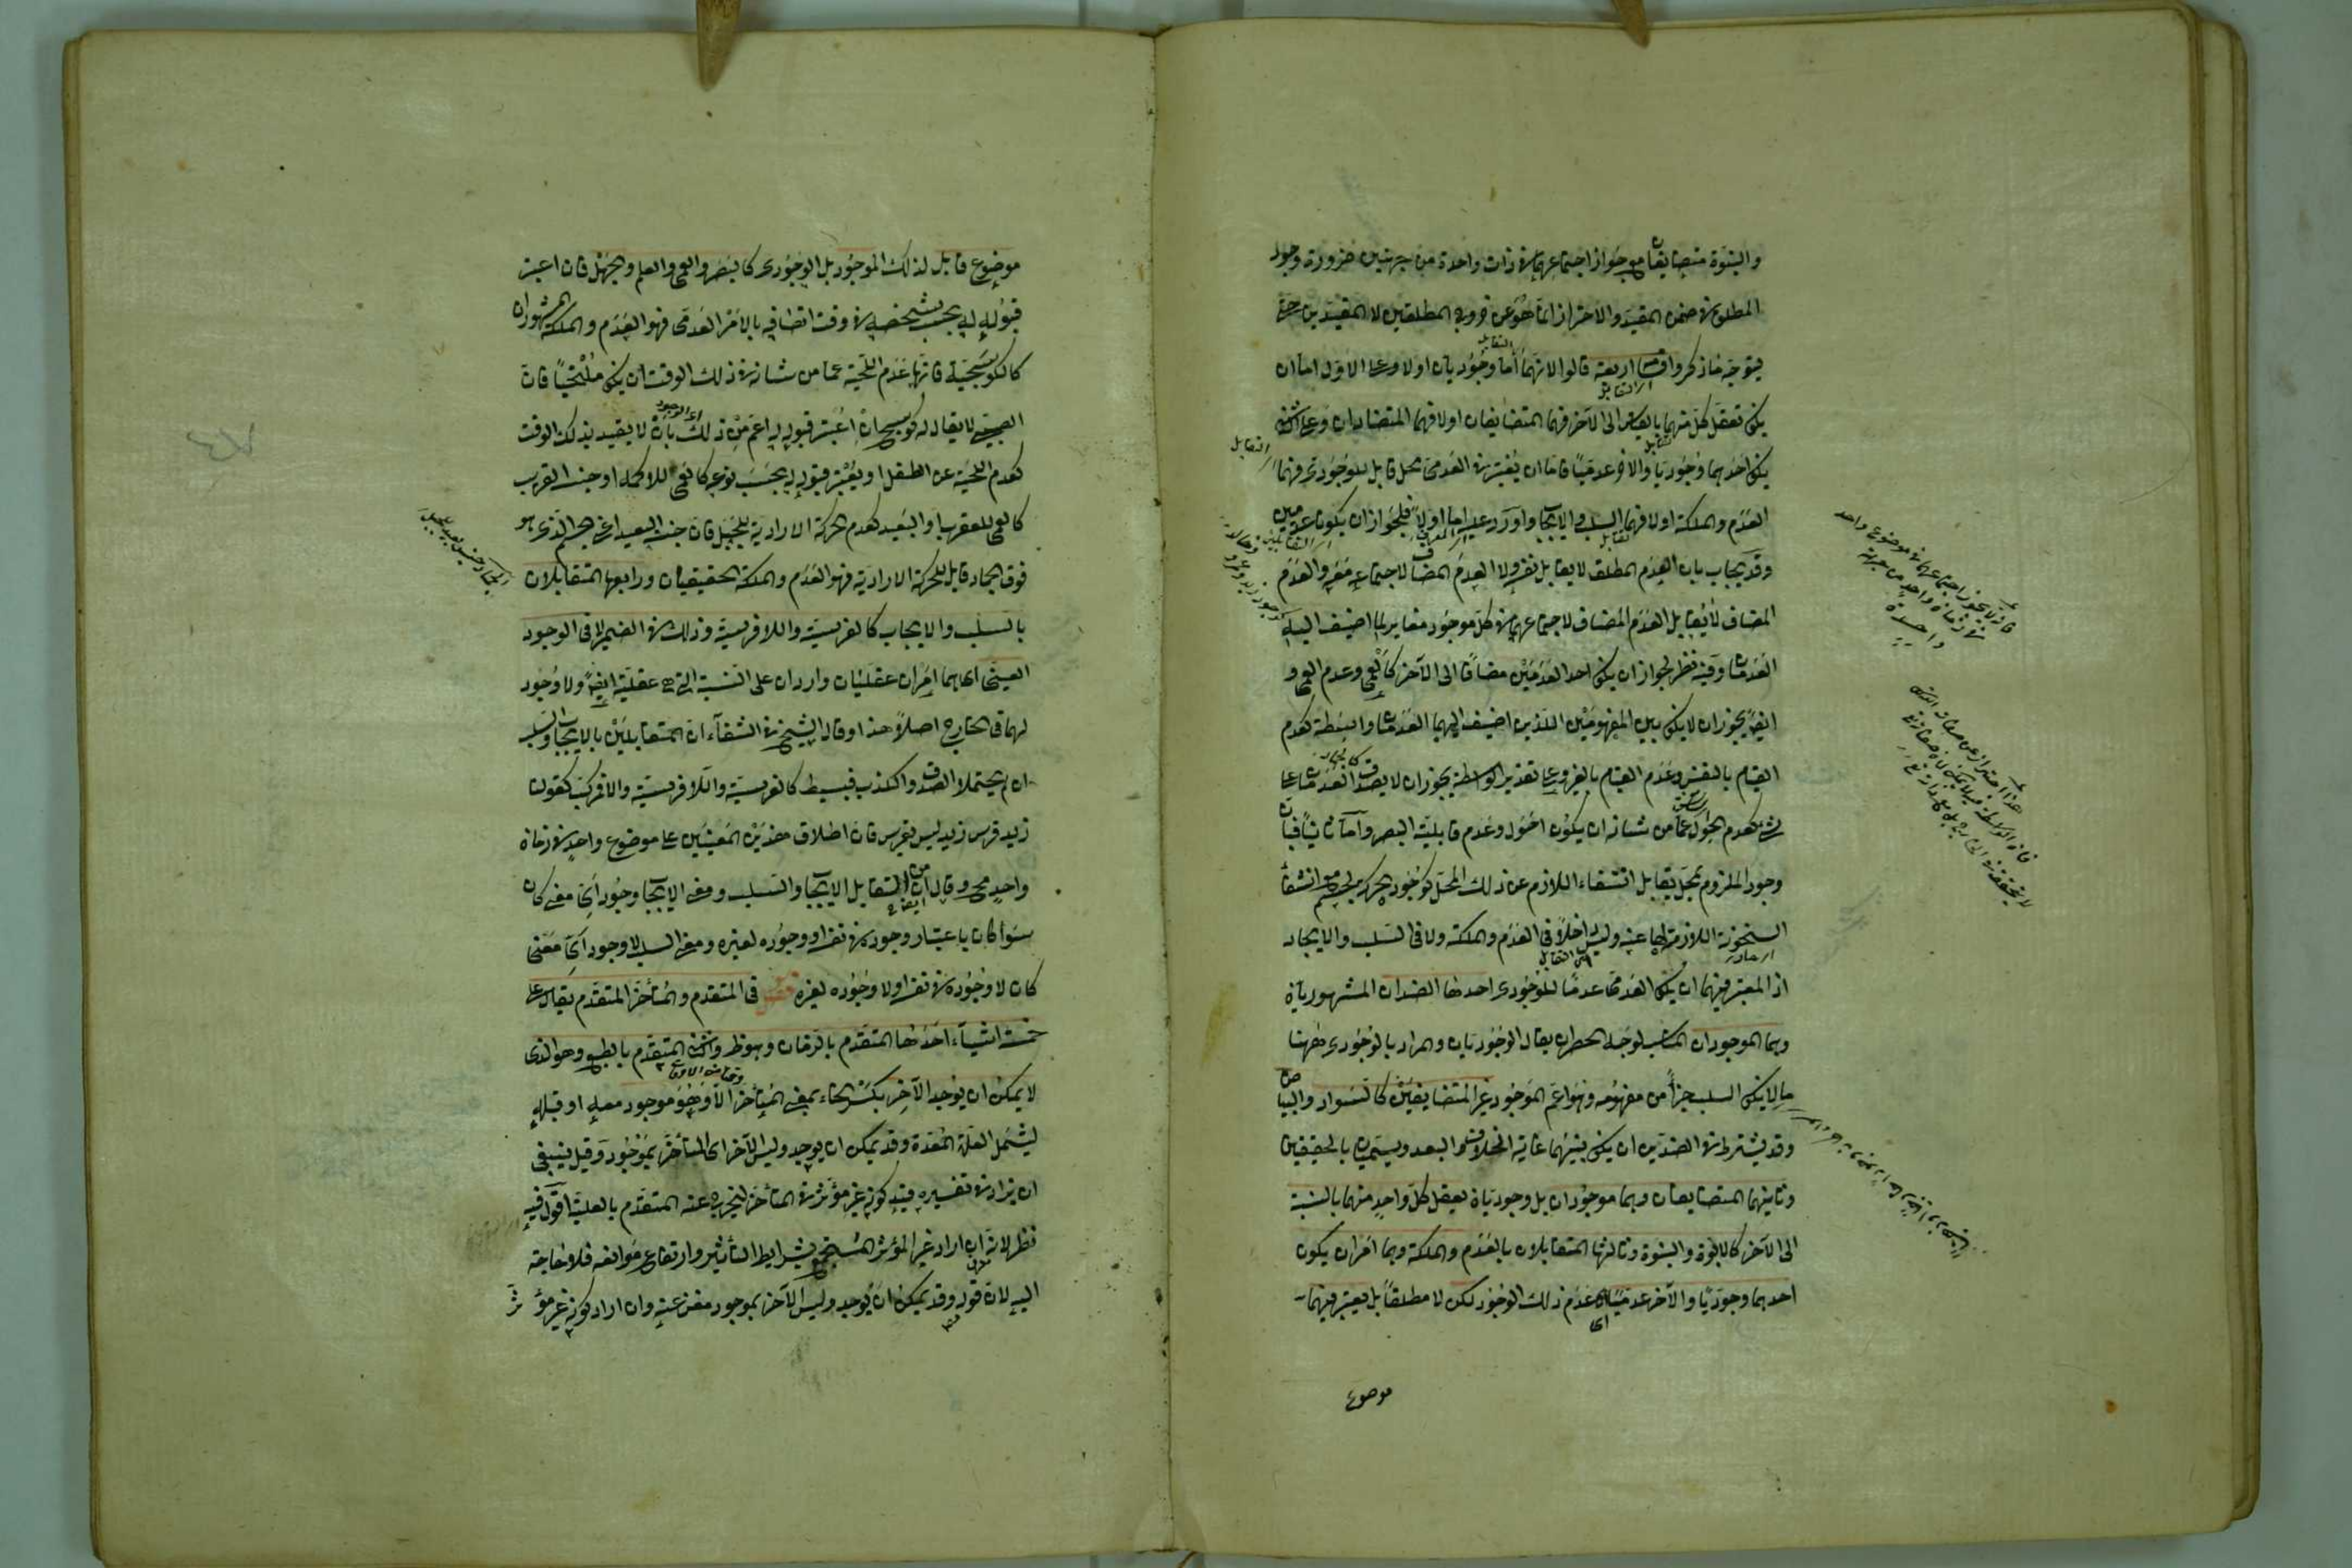 والبنوة متضايفان مع جواز اجتماعهما في ذات واحدة من جهتين ضرورة وجود
المطلق في ضمن المقيد والاحتراز انما هو عن خروج المطلقين لا المقيدين حتى
يتوجه ما ذكر واقسامه اربعة قالوا لانهما اما وجوديان او لا وعلى الاول اما ان
يكون تعقل كل منهما بالقياس الى الآخر فهما المتضايفان او لا فهما المتضادان وعلى الثاني
يكون احدهما وجوديا والآخر عدميا فاما ان يعتبر في العدمي محل قابل للوجودي فهما
العدم والملكة او لا فهما السلب والايجاب واورد عليه اما اولا فلجواز ان يكونا عدميين
وقد يجاب بان العدم المطلق لا يقابل نفسه ولا العدم المضاف لاجتماعه معه والعدم
المضاف لا يقابل العدم المضاف لاجتماعهما في كل موجود مغاير لما اضيف اليه
العدمان وفيه نظر لجواز ان يكون احد العدمين مضافا الى الآخر كالعمى وعدم العمى و
ايضا يجوز ان لا يكون بين المفهومين اللذين اضيف اليهما العدمان واسطة كعدم
القيام بالنفس وعدم القيام بالغير وعلى تقدير الواسطة يجوز ان لا يصدق العدمان على
شيء كعدم الحول عما من شانه ان يكون احول وعدم قابلية البصر واما ثانيا فبان
وجود الملزوم لمحل يقابل انتفاء اللازم عن ذلك المحل كوجود الحركة لجسم مع انتفاء
السخونة اللازمة لها عنه وليس داخلا في العدم والملكة ولا في السلب والايجاب
اذ المعتبر فيهما ان يكون العدمي عدما للوجودي احدها الضدان المشهوريان
وهما الموجودان المناسب لوجه الحصر ان يقال الوجوديان والمراد بالوجودي ههنا
ما لا يكون السلب جزأ من مفهومه وهو اعم الموجود غير المتضايفين كالسواد والبياض
وقد يشترط في الضدين ان يكون بينهما غاية الخلاف والبعد ويسميان بالحقيقيين
وثانيهما المتضايفان وهما موجودان بل وجوديان يعقل كل واحد منهما بالنسبة
الى الآخر كالابوة والبنوة وثالثها المتقابلان بالعدم والملكة وهما امران يكون
احدهما وجوديا والآخر عدميا اى عدم ذلك الوجود لكن لا مطلقا بل يعتبر فيهما
موضوع
فانه لا يجوز اجتماعهما في موضوع واحد
في زمان واحد من جهة
واحدة
موضوع قابل لذلك الموجود بل الوجودى كالبصر والعمى والعلم والجهل فان اعتبر
قبوله له بحسب شخصه في وقت اتصافه بالامر العدمى فهو العدم والملكة المشهوران
كالكوسجية فانها عدم اللحية عما من شانه في ذلك الوقت ان يكون ملتحيا فان
الصبى لا يقال له كوسج وان اعتبر قبوله له اعم من ذلك بان لا يقيد بذلك الوقت
كعدم اللحية عن الطفل او يعتبر قبوله له بحسب نوعه كالعمى للاكمه او جنسه القريب
كالعمى للعقرب او البعيد كعدم الحركة الارادية للجبل فان جنسه البعيد اعنى الجسم الذى هو
فوق الجماد قابل للحركة الارادية فهو العدم والملكة الحقيقيان ورابعها المتقابلان
بالسلب والايجاب كالفرسية واللافرسية وذلك في الضمير لا في الوجود
العينى اى هما امران عقليان واردان على النسبة التى هى عقلية ايضا ولا وجود
لهما في الخارج اصلا هذا وقال الشيخ في الشفاء ان المتقابلين بالايجاب والسلب
ان لم يحتملا الصدق والكذب فبسيط كالفرسية واللافرسية والا فمركب كقولنا
زيد فرس زيد ليس بفرس فان اطلاق هذين المعنيين على موضوع واحد في زمان
واحد محال وقال ايضا ان من التقابل الايجاب والسلب ومعنى الايجاب وجود اى معنى كان
سواء كان باعتبار وجوده في نفسه او وجوده لغيره ومعنى السلب لا وجود اى معنى
كان لا وجوده في نفسه او لا وجوده لغيره فصل في المتقدم والمتأخر المتقدم يقال على
خمسة اشياء احدها المتقدم بالزمان وهو ظ والثانى المتقدم بالطبع وهو الذى
لا يمكن ان يوجد الآخر بكسر الخاء بمعنى المتأخر الا وهو موجود معه او قبله
ليشمل العلة المعدة وقد يمكن ان يوجد وليس الآخر اى المتأخر بموجود وقيل ينبغى
ان يزاد في تفسيره قيد كونه غير مؤثر في المتأخر ليخرج عنه المتقدم بالعلية اقول فيه
نظر لانه ان اراد غير المؤثر المستجمع لشرايط التأثير وارتفاع موانعه فلا حاجة
اليه لان قوله وقد يمكن ان يوجد وليس الآخر بموجود مغن عنه وان اراد كونه غير مؤثر